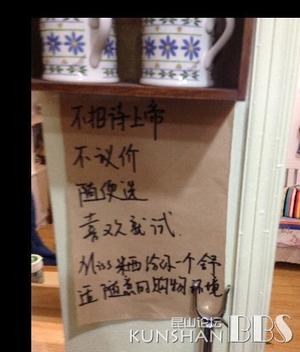 不招待上帝
不议价
随便选
喜欢就试
Miss米西给你一个舒
适随意的购物环境
昆山论坛
KUNSHAN BBS